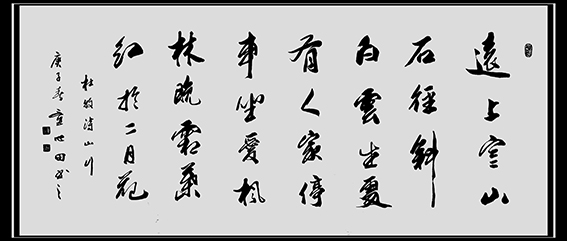 遠上寒山
石徑斜
白雲生處
有人家停
車坐愛楓
林晚霜葉
红於二月花
杜牧詩山行
庚子春童世田书之